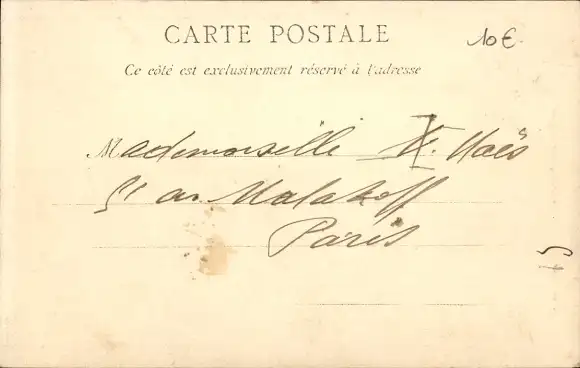 CARTE POSTALE
10€
Ce côté est exclusivement réservé à l'adresse
Mademoiselle Maës
51 av Malakoff
Paris